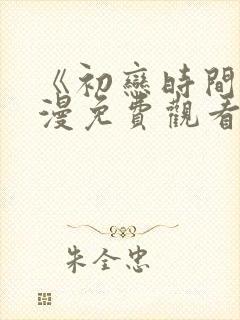 《初戀時間
漫免費觀看
朱全忠